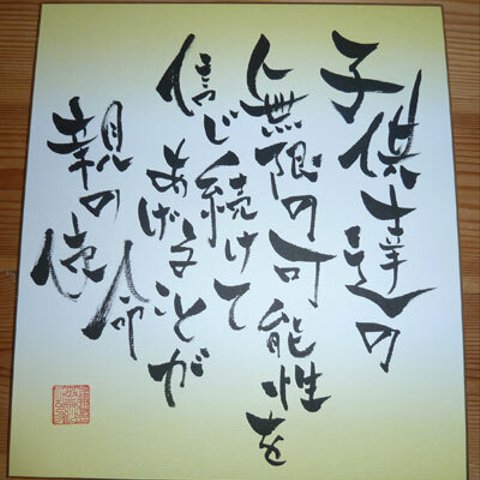 子供達の
無限の可能性を
信じ続けて
あげることが
親の使命